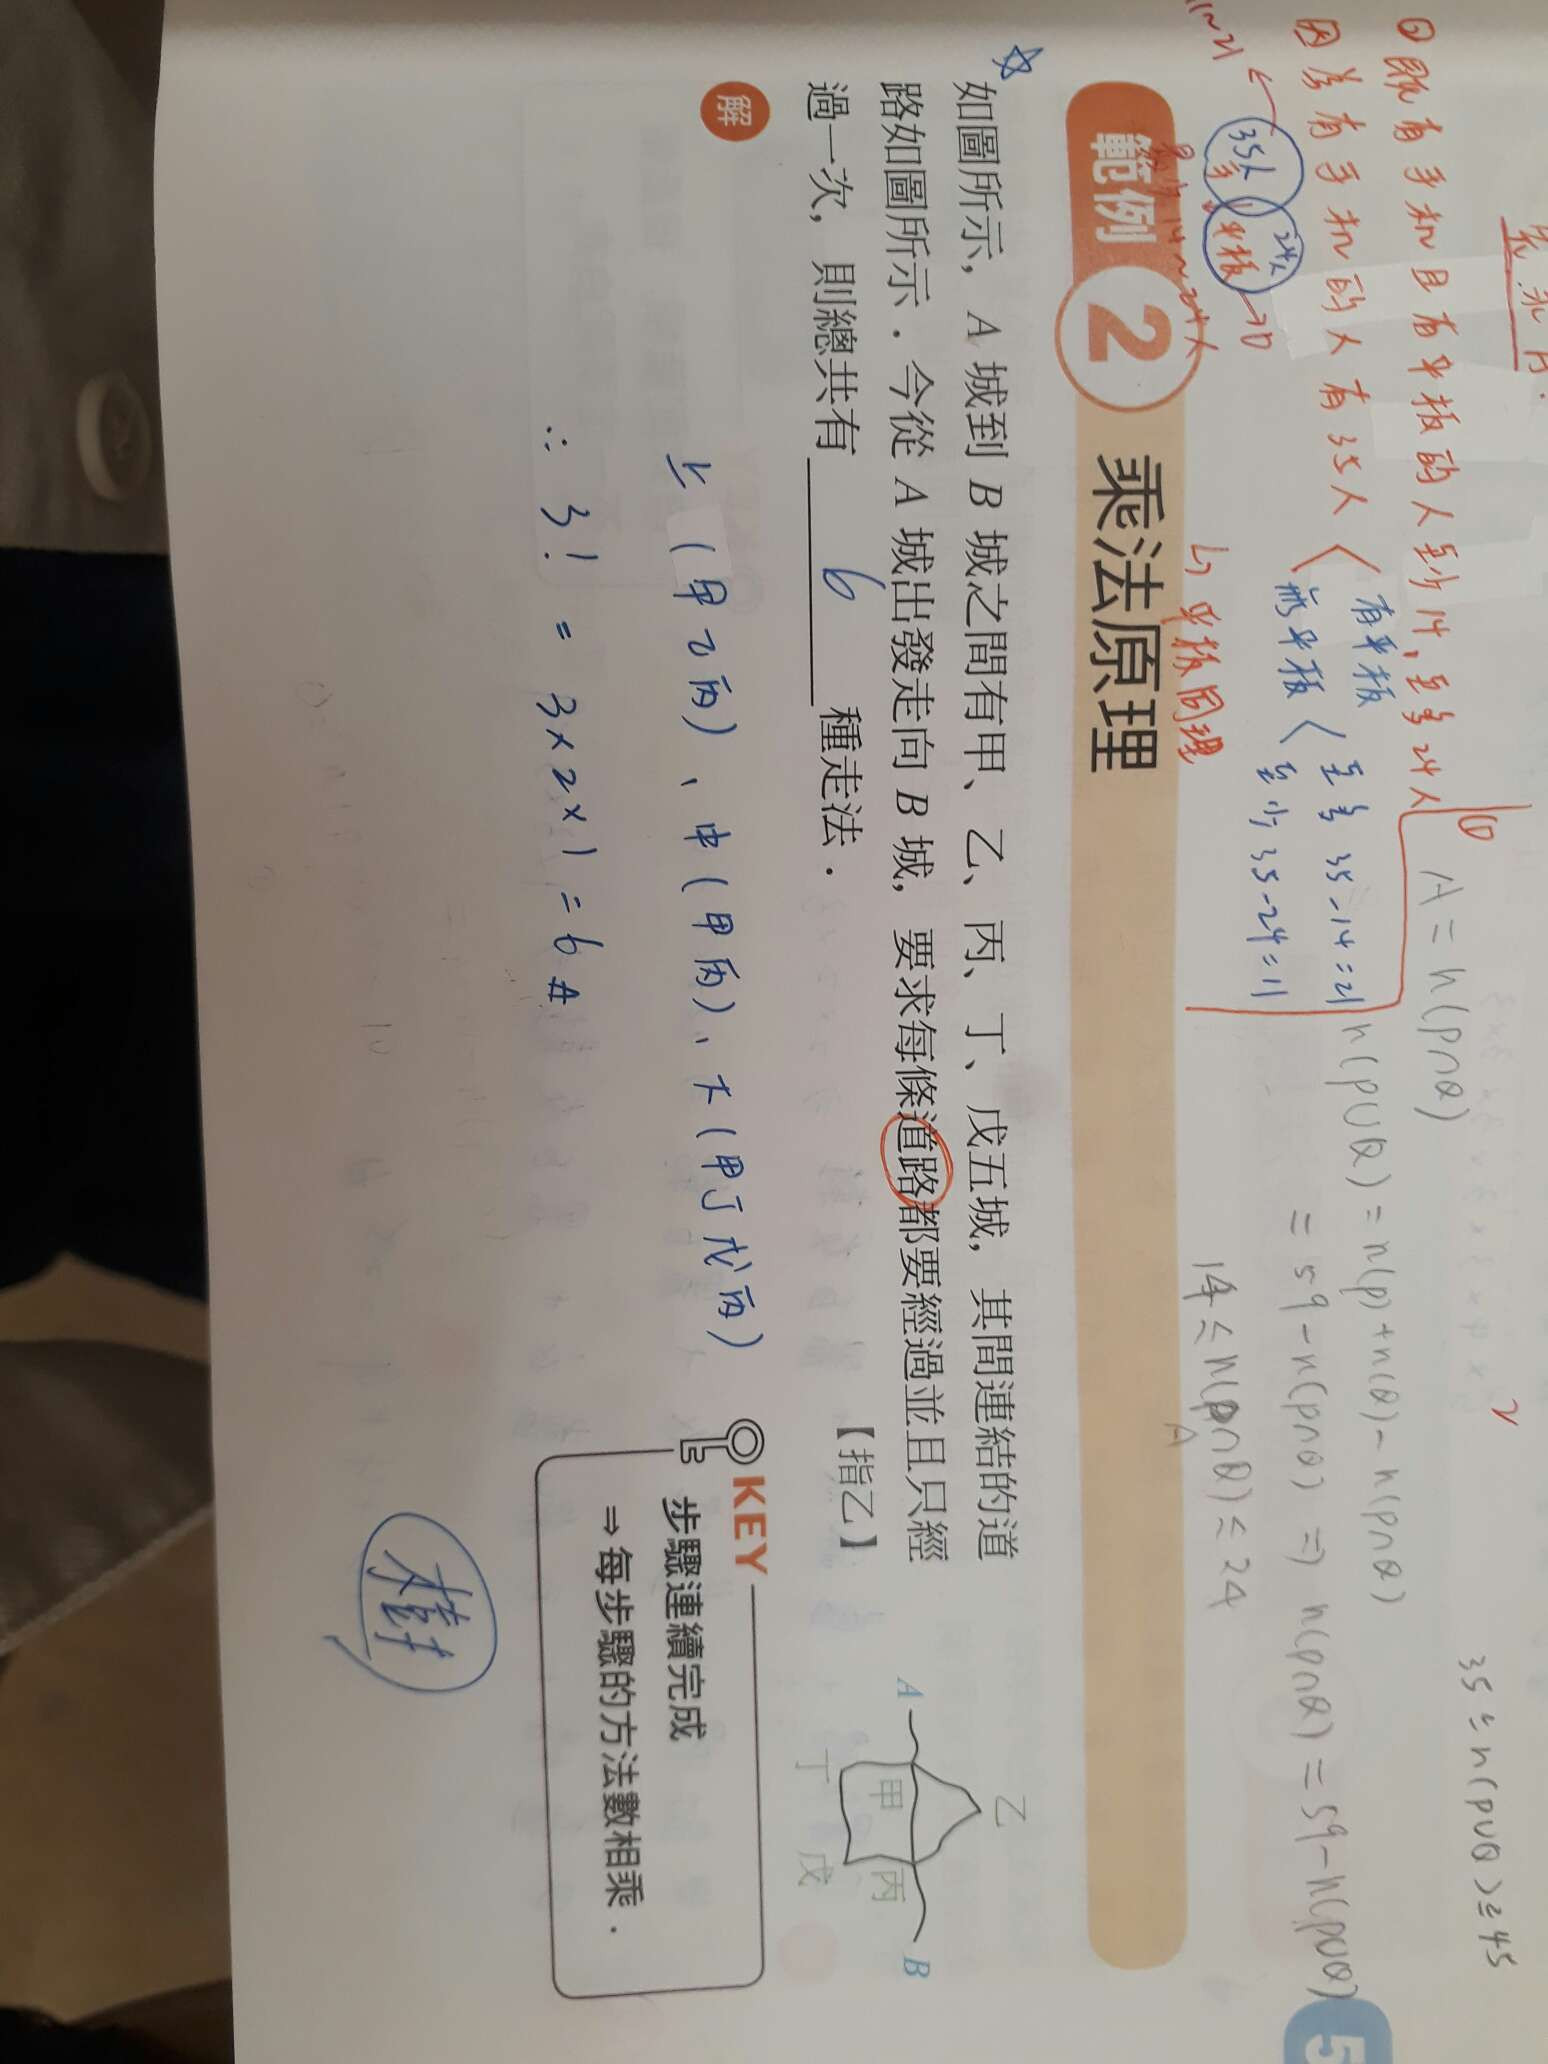 ①既有手机且有平板的人至少14,至多24人
因為有手机的人有35人
有平板
無平板
至多 35-14=21
至少 35-24=11
35人
24人
平板
↳平板同理
A = n(P∩Q)
n(P∪Q) = n(P)+n(Q)-n(P∩Q)
= 59-n(P∩Q) => n(P∩Q) = 59-n(P∪Q)
14 ≤ n(P∩Q) ≤ 24
A
5
範例 2 乘法原理
如圖所示,A 城到 B 城之間有甲、乙、丙、丁、戊五城,其間連結的道
路如圖所示.今從 A 城出發走向 B 城,要求每條道路都要經過並且只經
過一次,則總共有 6 種走法. 【指乙】
A
甲
乙
丙
丁
戊
B
解
上(甲乙丙)、中(甲丙)、下(甲丁戊丙)
∴ 3! = 3×2×1 = 6 #
KEY
步驟連續完成
⇒每步驟的方法數相乘.